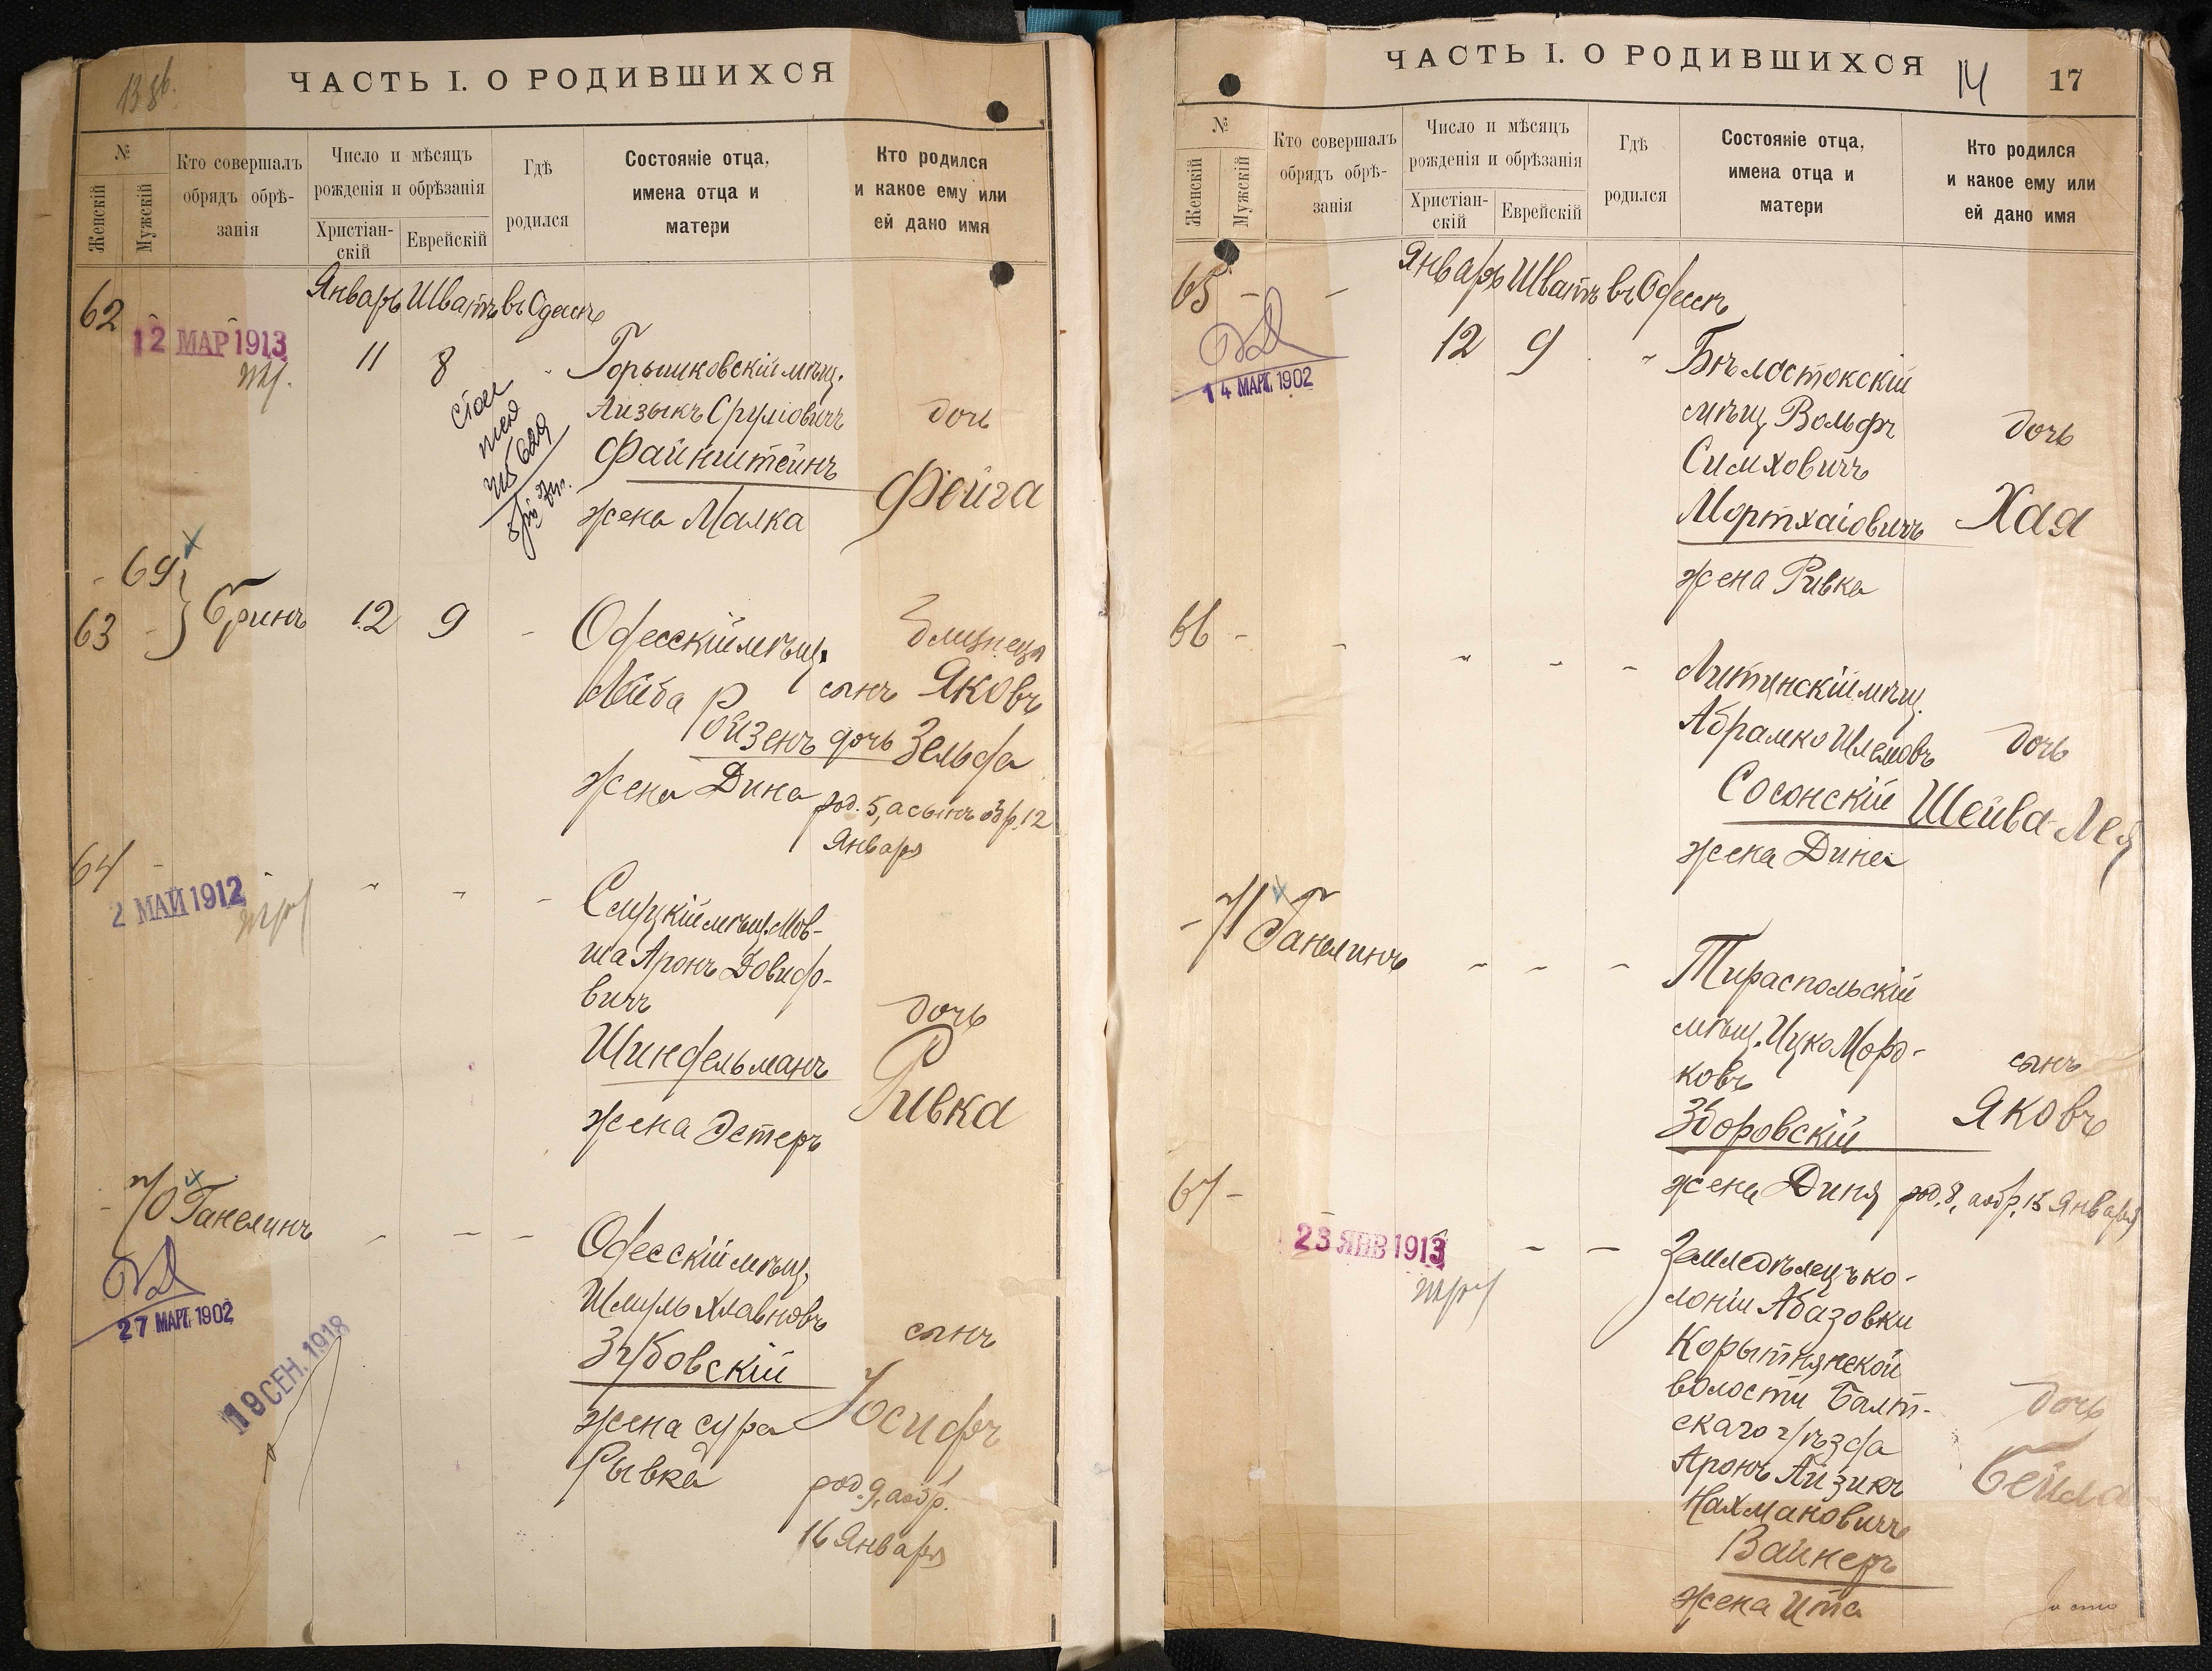 ЧАСТЬ I. О РОДИВШИХСЯ
№
Женскій
Мужскій
Кто совершалъ
обрядъ обрѣ-
занія
Число и мѣсяцъ
рожденія и обрѣзанія
Христіан-
скій
Еврейскій
Гдѣ
родился
Состояніе отца,
имена отца и
матери
Кто родился
и какое ему или
ей дано имя
Январь Шватъ въ Одессѣ
62 -
12 МАР 1913
11 8 -
Горышковскій мѣщ.
Айзыкъ Сруліовичъ
Файнштейнъ
жена Малка
дочь
Фейга
69
63
Гринъ
12 9 -
Одесскій мѣщ.
Лейба
Ройзенъ
жена Дина
близнецы
сынъ Яковъ
дочь Зельда
род. 5, а сынъ обр. 12
Января
64 -
2 МАЙ 1912
Слуцкій мѣщ. Мов-
ша Аронъ Довидо-
вичъ
Шиндельманъ
жена Эстеръ
дочь
Ривка
- 70 Ганелинъ
27 МАРТ. 1902
19 СЕН. 1918
Одесскій мѣщ.
Шмуль Хлавновъ
Зубовскій
жена Сура
Рывка
сынъ
Іосифъ
род. 9, а обр.
16 Января
ЧАСТЬ I. О РОДИВШИХСЯ
14 17
№
Женскій
Мужскій
Кто совершалъ
обрядъ обрѣ-
занія
Число и мѣсяцъ
рожденія и обрѣзанія
Христіан-
скій
Еврейскій
Гдѣ
родился
Состояніе отца,
имена отца и
матери
Кто родился
и какое ему или
ей дано имя
Январь Шватъ въ Одессѣ
65 -
14 МАРТ. 1902
12 9 -
Бѣлостокскій
мѣщ. Вольфъ
Симховичъ
Мортхаіовичъ
жена Ривка
дочь
Хая
66 -
Литинскій мѣщ.
Абрамко Шлемовъ
Сосонскій
жена Дина
дочь
Шейва-Лея
- 71 Ганелинъ
Тираспольскій
мѣщ. Ицко Морд-
ковъ
Зборовскій
жена Диня
сынъ
Яковъ
род. 8, а обр. 15 Января
67 -
23 ЯНВ 1913
Земледѣлецъ ко-
лоніи Абазовки
Корытнянской
волости Балт-
скаго уѣзда
Аронъ Айзикъ
Нахмановичъ
Вайнеръ
жена Ита
дочь
Бейла